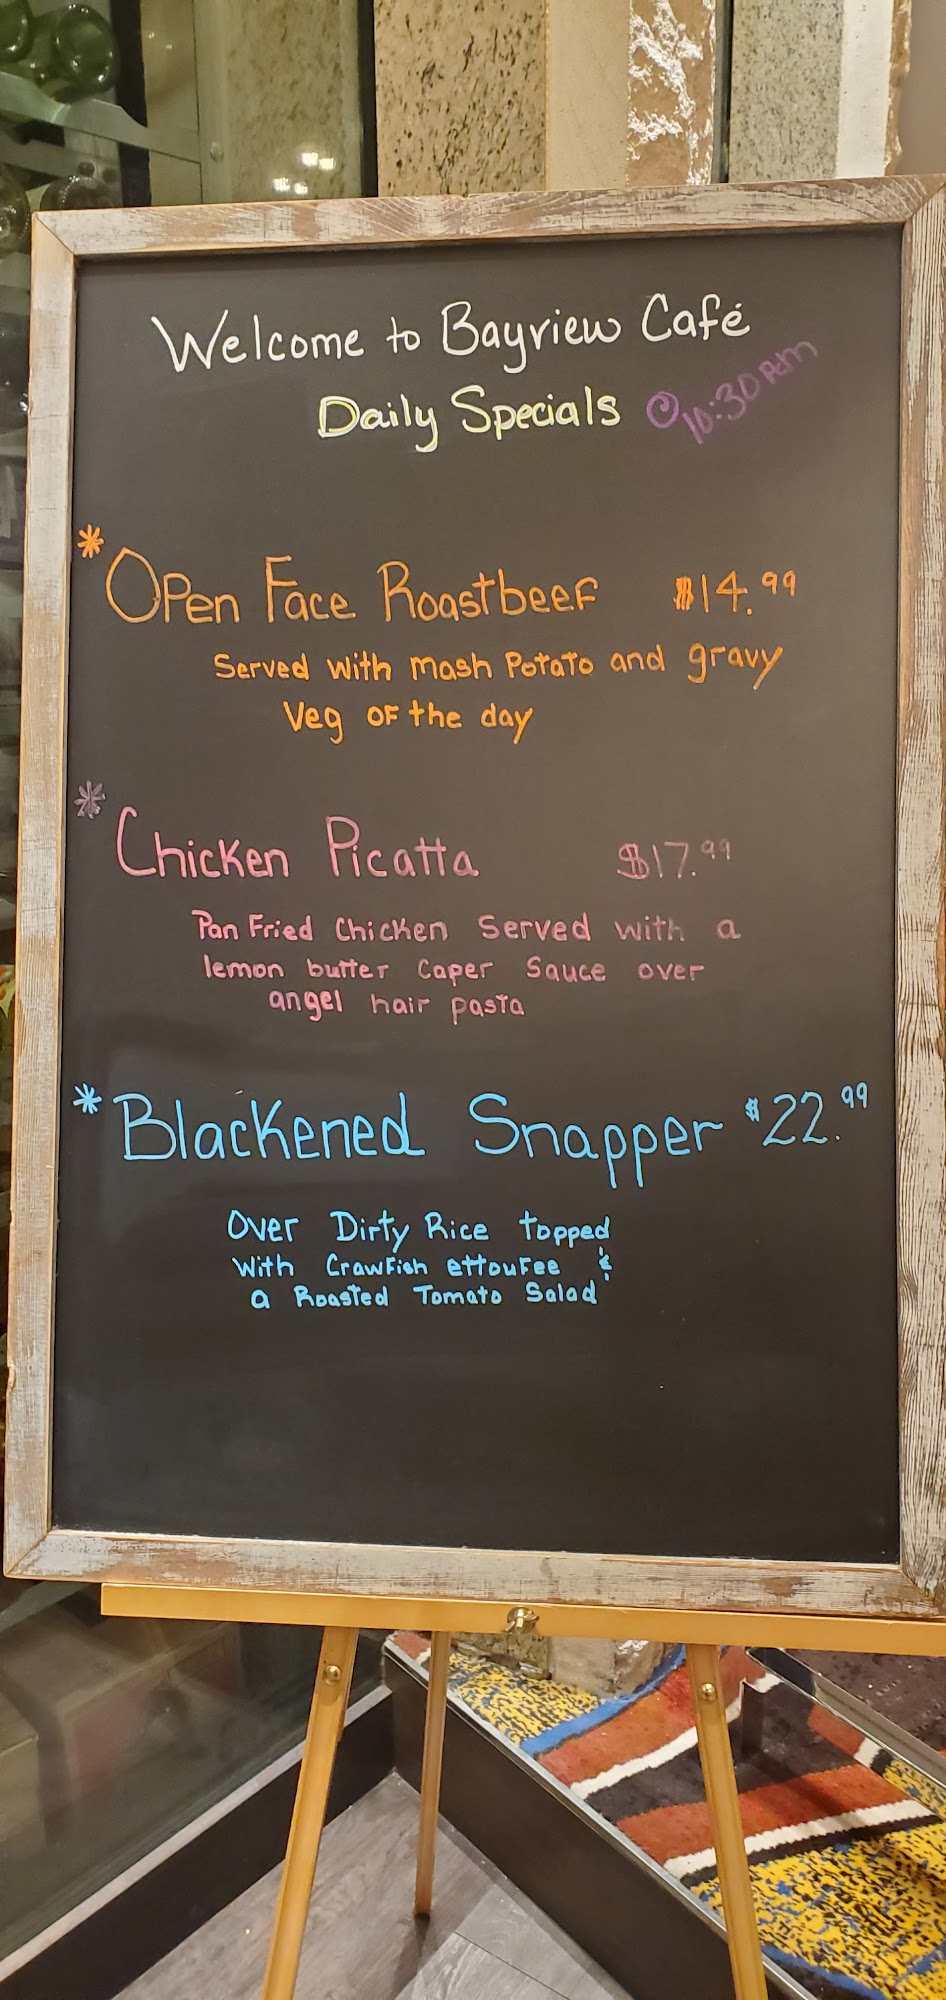 Welcome to Bayview Café
Daily Specials @ 10:30 Am
* Open Face Roastbeef $14.99
Served with mash Potato and gravy
Veg of the day
* Chicken Picatta $17.99
Pan Fried Chicken Served with a
lemon butter Caper Sauce over
angel hair pasta
* Blackened Snapper $22.99
Over Dirty Rice topped
With Crawfish ettoufee &
a Roasted Tomato Salad